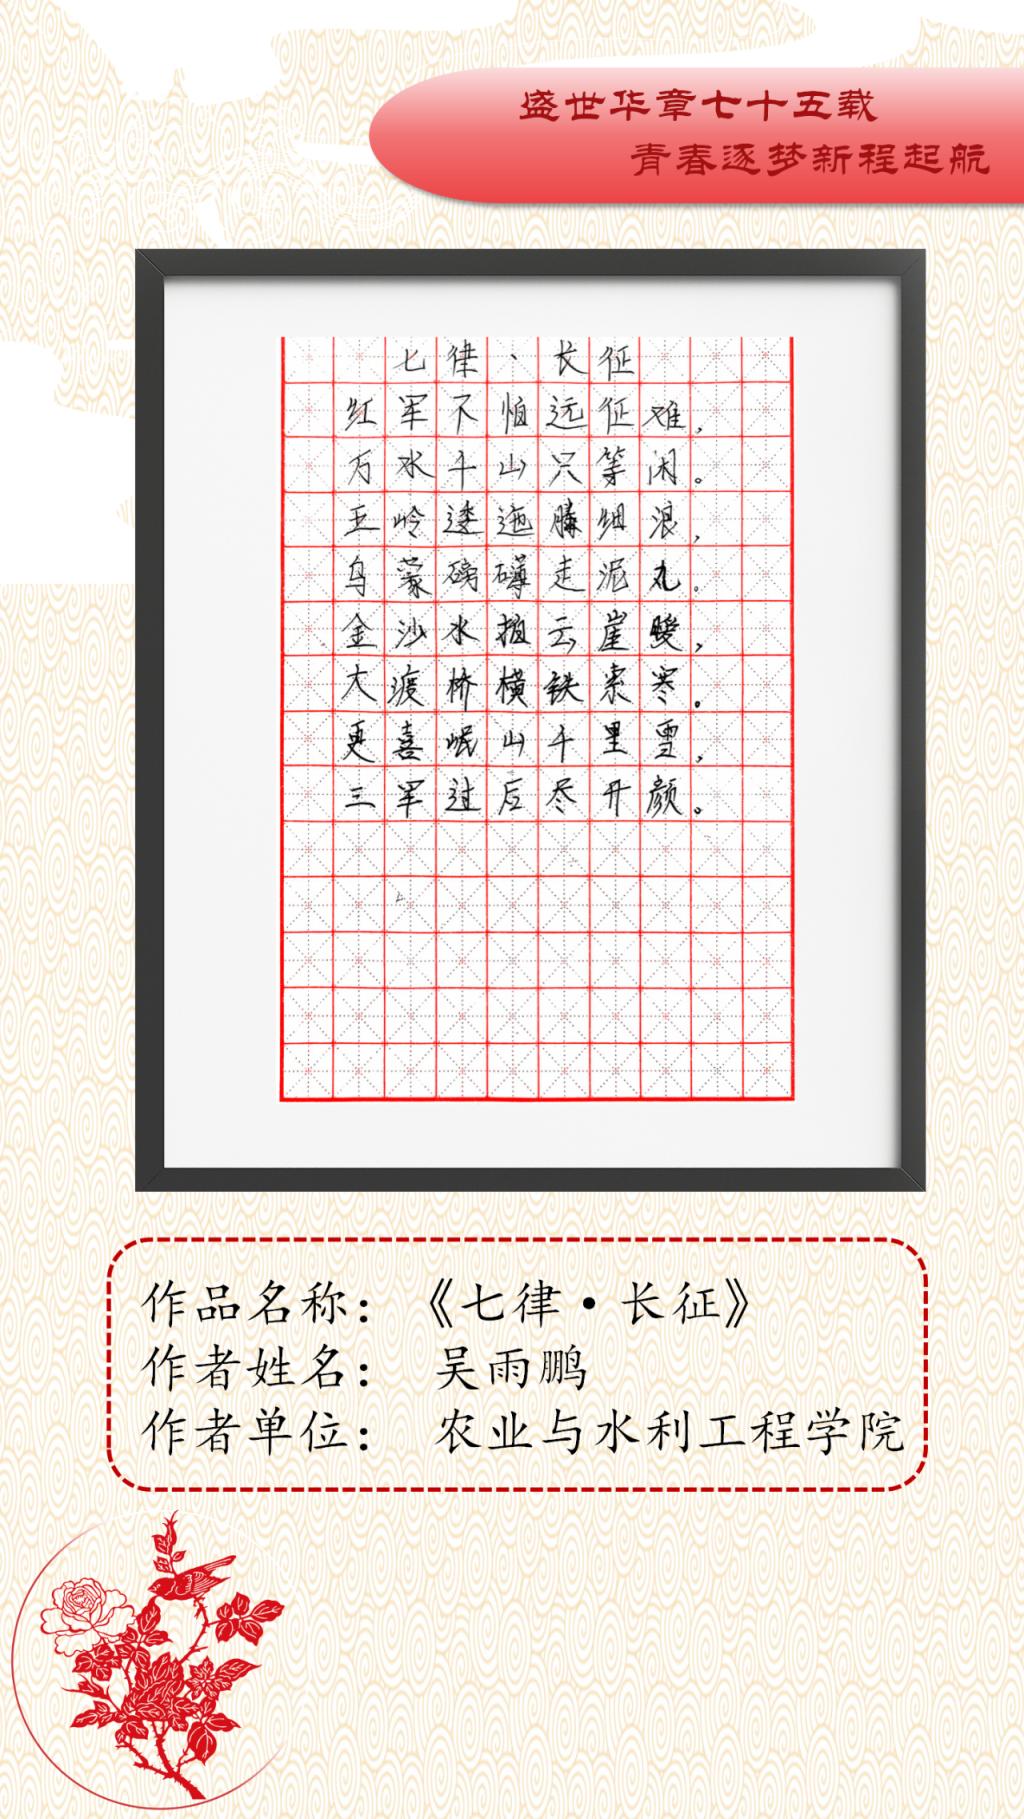 盛世华章七十五载
青春逐梦新程起航
七律、长征
红军不怕远征难，
万水千山只等闲。
五岭逶迤腾细浪，
乌蒙磅礴走泥丸。
金沙水拍云崖暖，
大渡桥横铁索寒。
更喜岷山千里雪，
三军过后尽开颜。
作品名称：《七律·长征》
作者姓名： 吴雨鹏
作者单位： 农业与水利工程学院